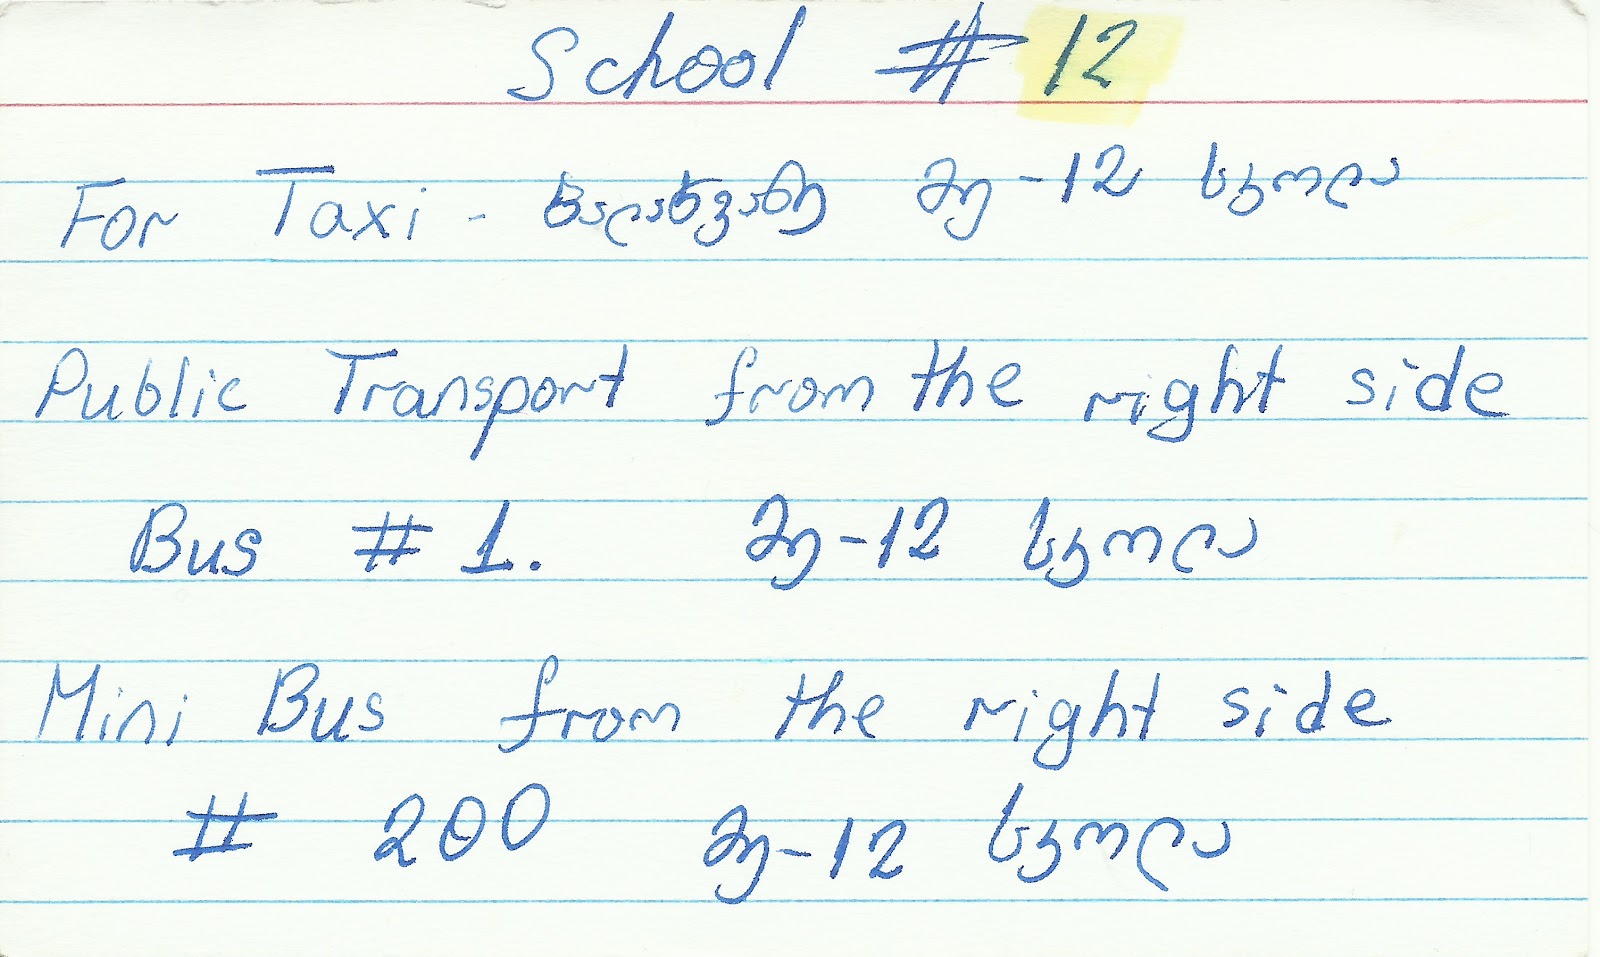 School # 12
For Taxi - მე-12 სკოლა
Public Transport from the right side
Bus # 1. მე-12 სკოლა
Mini Bus from the right side
# 200 მე-12 სკოლა